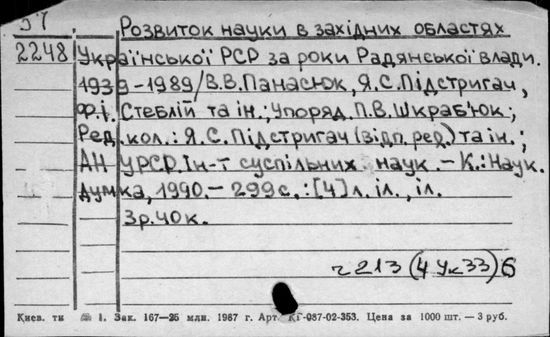 57
Розвиток науки в західних областях
2248 Української РСР за роки Радянської влади.
1939-1989/В.В.Панасюк, Я.С.Підстригач,
Ф.І. Стеблій та ін.; Упоряд. П.В.Шкраб'юк;
Ред.кол.: Я.С.Підстригач (відп.ред.) та ін.;
АН УРСР. Ін-т суспільних наук. – К.: Наук.
думка, 1990. – 299 с. : [4] л. іл., іл.
3р.40к.
г213 (4Ук33)6
Киев. ти 1. Зак. 167—25 млн. 1987 г. Арт. КГ-087-02-353. Цена за 1000 шт. — 3 руб.